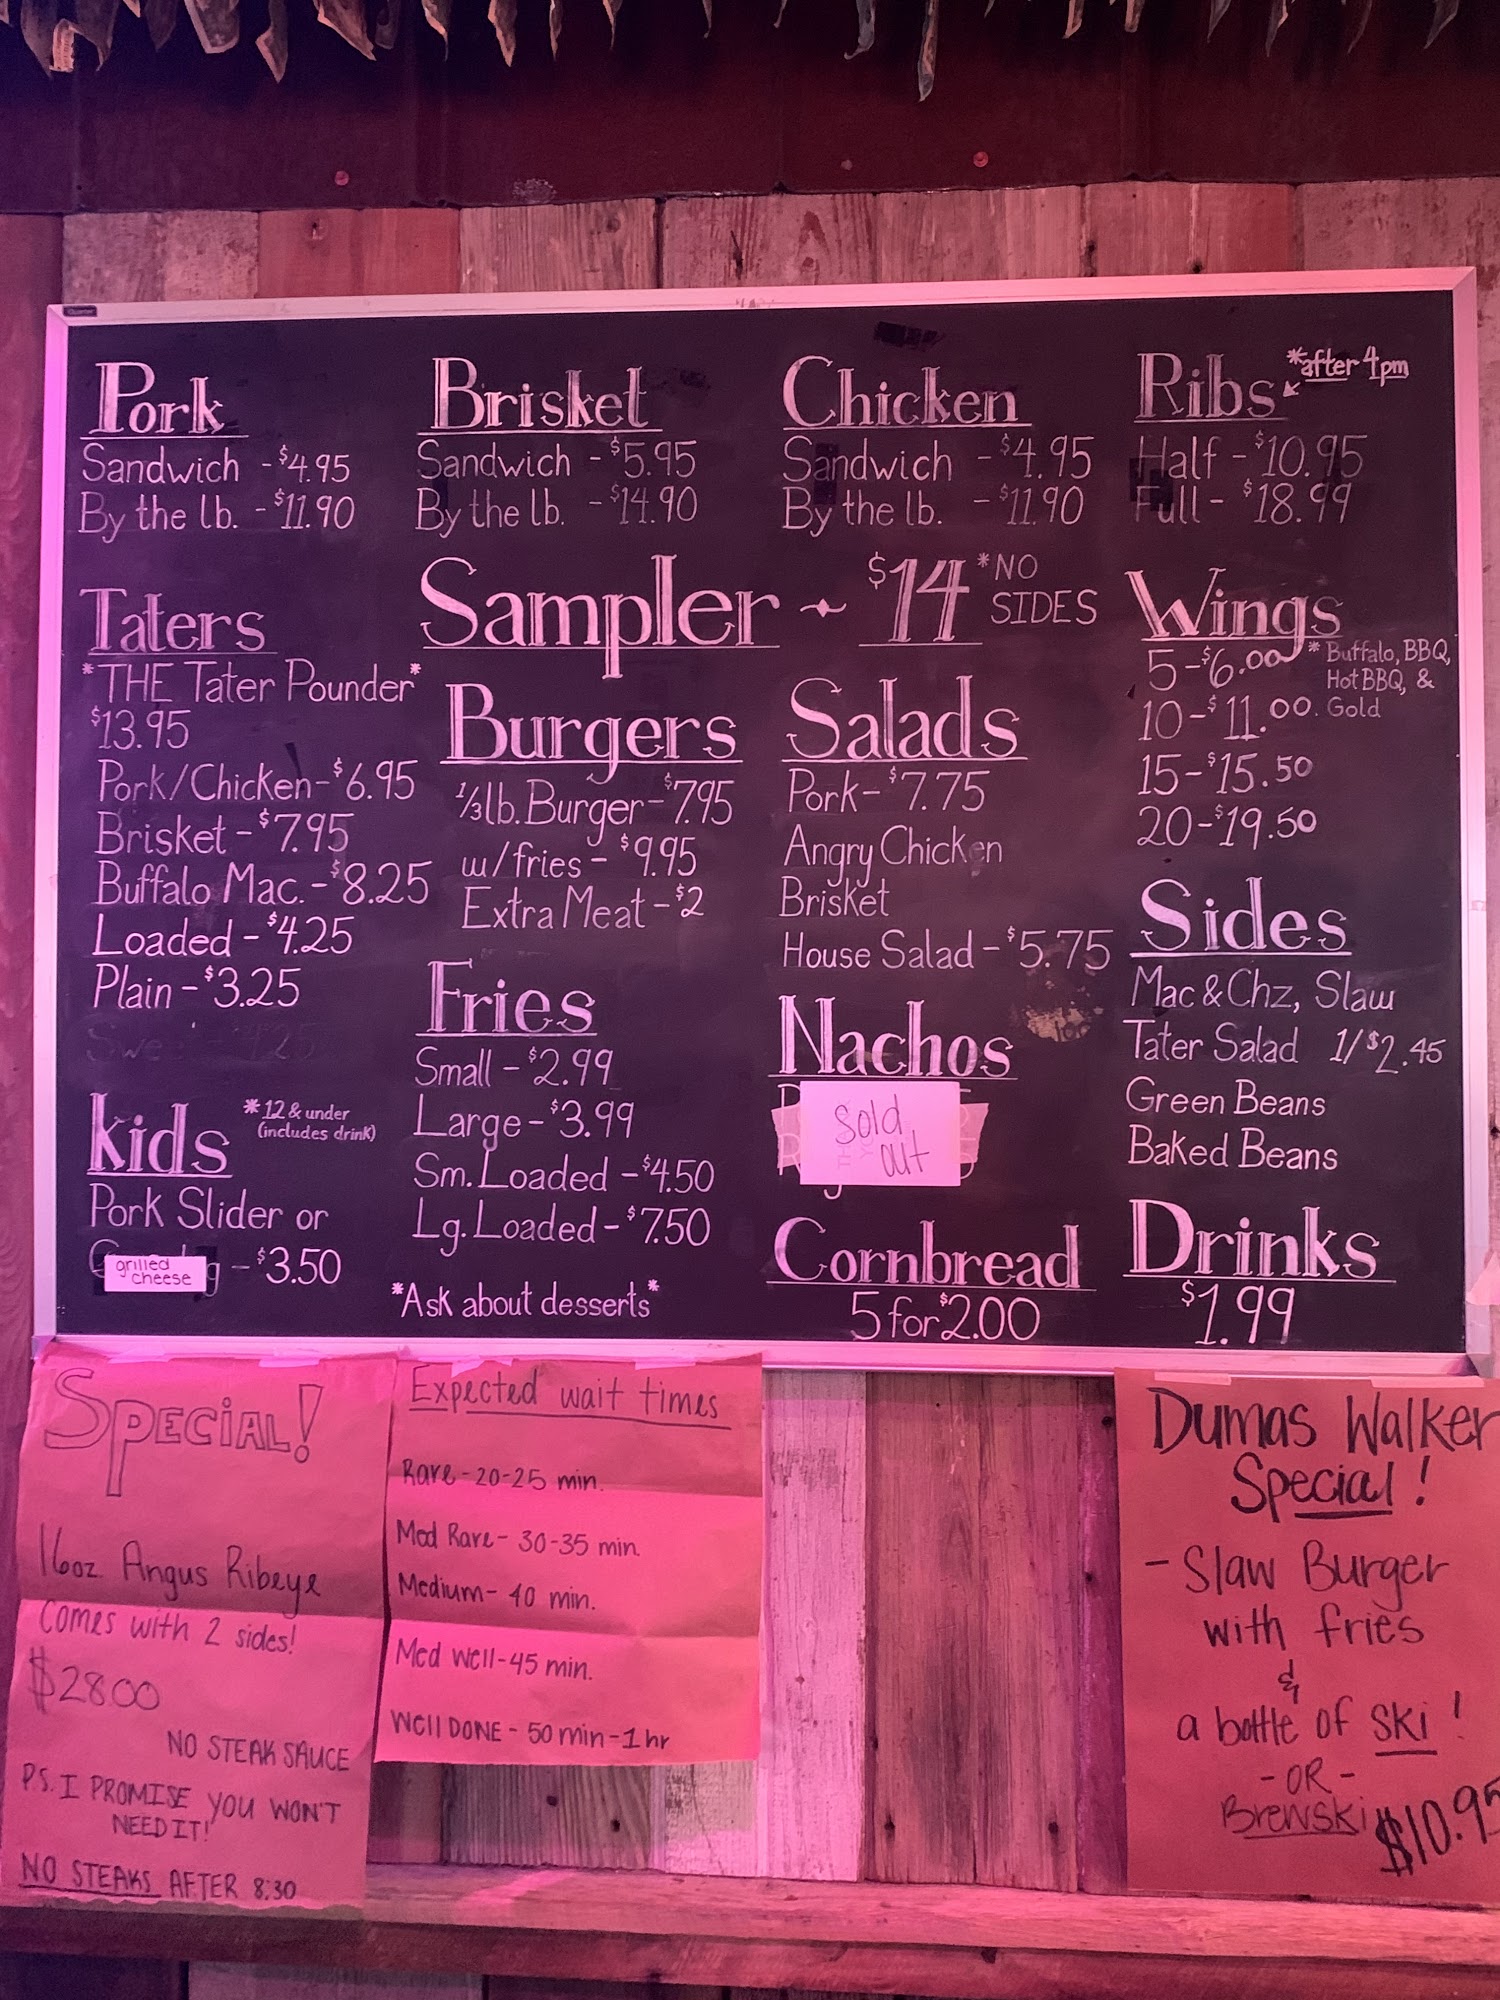 Pork
Sandwich - $4.95
By the lb. - $11.90
Brisket
Sandwich - $5.95
By the lb. - $14.90
Chicken
Sandwich - $4.95
By the lb. - $11.90
Ribs *after 4pm
Half - $10.95
Full - $18.99
Sampler - $14 *NO
SIDES
Taters
*THE Tater Pounder*
$13.95
Pork/Chicken - $6.95
Brisket - $7.95
Buffalo Mac. - $8.25
Loaded - $4.25
Plain - $3.25
Kids *12 & under
(includes drink)
Pork Slider or
grilled
cheese - $3.50
Burgers
1/3 lb. Burger - $7.95
w/fries - $9.95
Extra Meat - $2
Fries
Small - $2.99
Large - $3.99
Sm. Loaded - $4.50
Lg. Loaded - $7.50
*Ask about desserts*
Salads
Pork - $7.75
Angry Chicken
Brisket
House Salad - $5.75
Nachos
Sold
out
Cornbread
5 for $2.00
Wings
5 - $6.00 *Buffalo, BBQ,
Hot BBQ, &
10 - $11.00. Gold
15 - $15.50
20 - $19.50
Sides
Mac & Chz, Slaw
Tater Salad 1/$2.45
Green Beans
Baked Beans
Drinks
$1.99
SPECiAL!
16oz. Angus Ribeye
Comes with 2 sides!
$28.00
NO STEAK SAUCE
P.S. I PROMISE YOU WON'T
NEED IT!
NO STEAKS AFTER 8:30
Expected wait times
Rare - 20-25 min.
Med Rare - 30-35 min.
Medium - 40 min.
Med Well - 45 min.
Well DONE - 50 min - 1 hr
Dumas Walker
Special!
- Slaw Burger
with fries
&
a bottle of SKi!
- OR -
Brewski $10.95